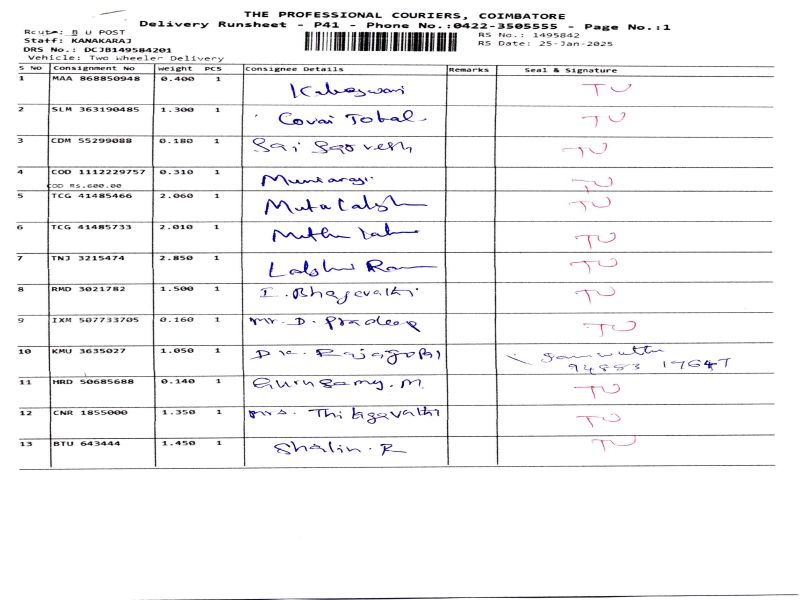 THE PROFESSIONAL COURIERS, COIMBATORE
Delivery Runsheet - P41 - Phone No.:0422-3505555 - Page No.:1
Route: B U POST
RS No.: 1495842
Staff: KANAKARAJ
RS Date: 25-Jan-2025
DRS No.: DCJB149584201
Vehicle: Two Wheeler Delivery
S No Consignment No Weight PCS Consignee Details Remarks Seal & Signature
1 MAA 868850948 0.400 1 TU
2 SLM 363190485 1.300 1 Covai TU
3 CDM 55299088 0.180 1 Sai Sarvesh TU
4 COD 1112229757 0.310 1 TU
COD RS.600.00
5 TCG 41485466 2.060 1 TU
6 TCG 41485733 2.010 1 TU
7 TNJ 3215474 2.850 1 Lakshmi Ram TU
8 RMD 3021782 1.500 1 I. Bhagavathi TU
9 IXM 507733705 0.160 1 Mr. D. Pradeep TU
10 KMU 3635027 1.050 1 Rajagopal
11 HRD 50685688 0.140 1 Gurusamy. M. TU
12 CNR 1855000 1.350 1 Mrs. Thilagavathi TU
13 BTU 643444 1.450 1 Shalin. R TU